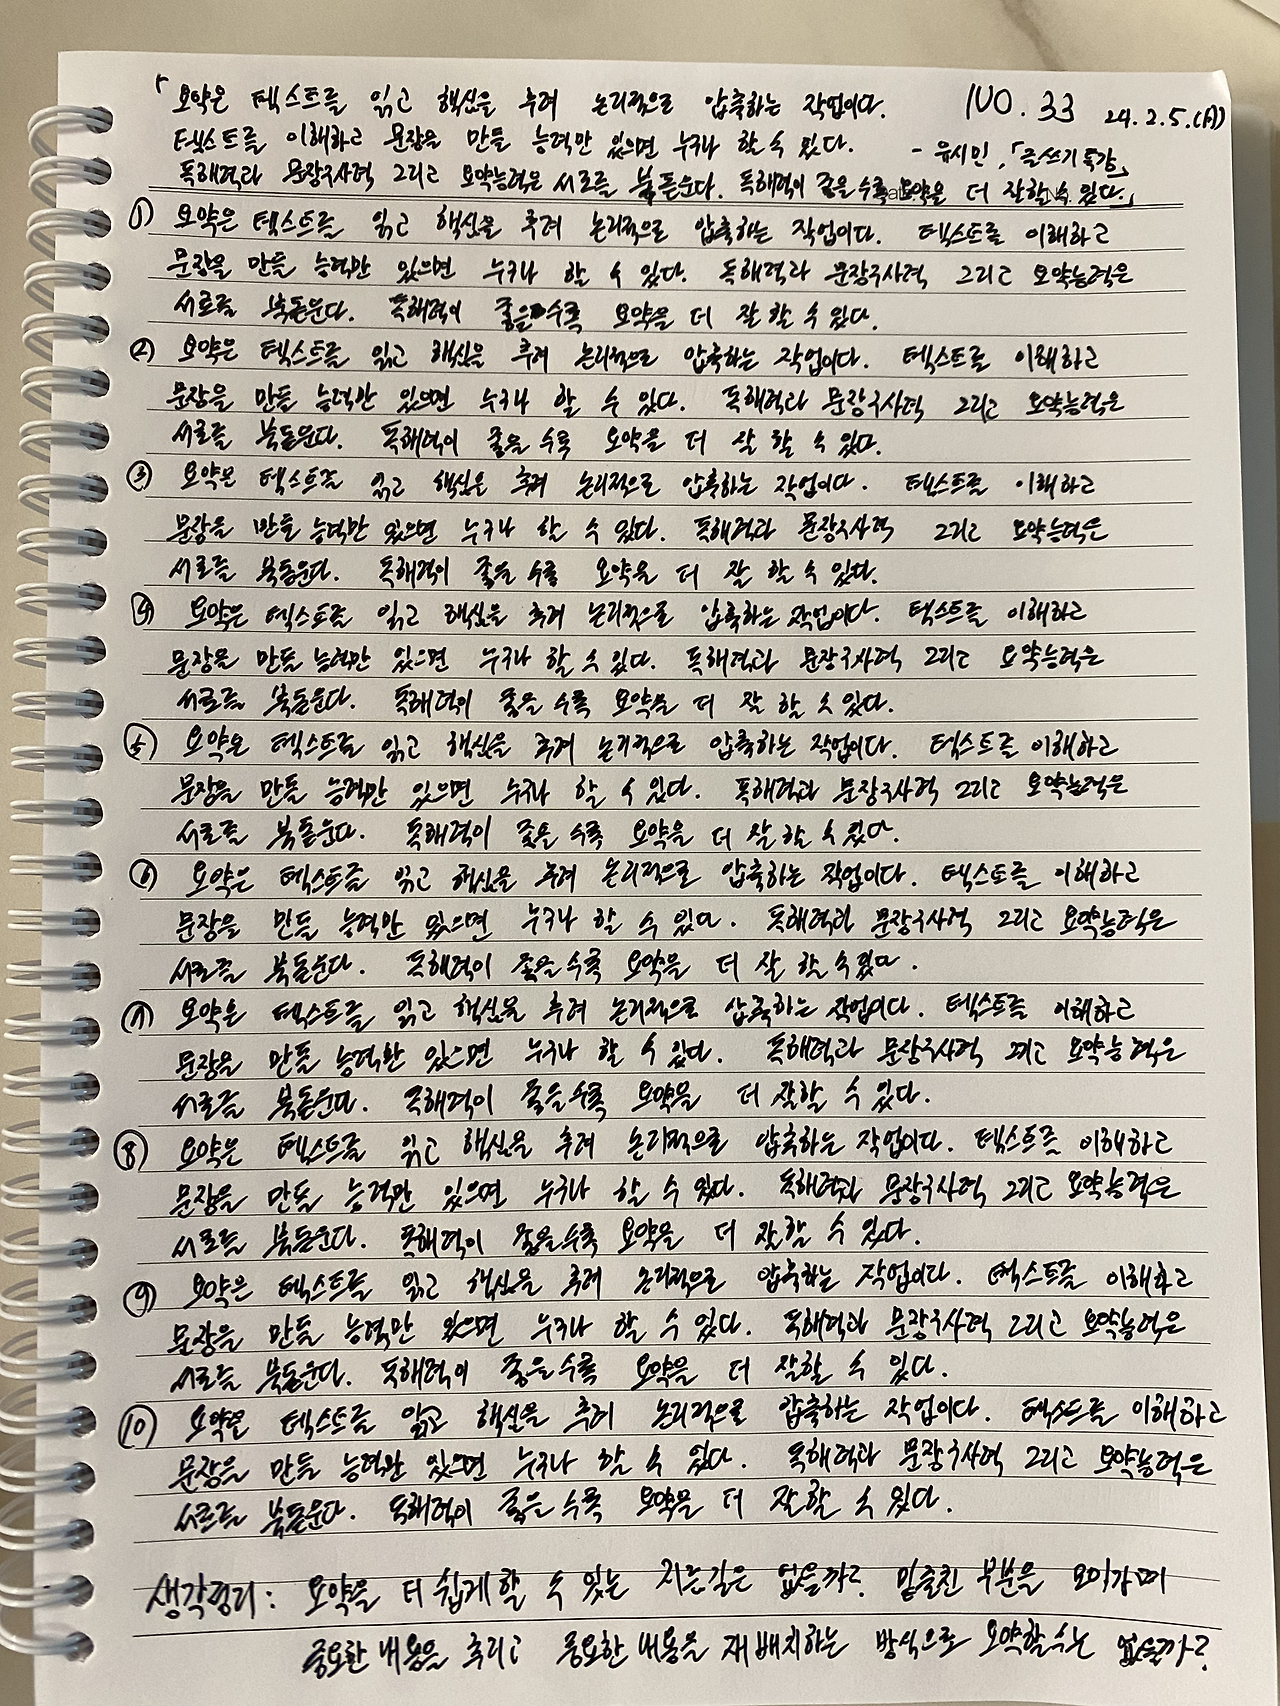 「요약은 텍스트를 읽고 핵심을 추려 논리적으로 압축하는 작업이다. NO.33 24.2.5.(월)
텍스트를 이해하고 문장을 만들 능력만 있으면 누구나 할 수 있다. - 유시민,「글쓰기 특강」
독해력과 문장구사력 그리고 요약능력은 서로를 북돋운다. 독해력이 좋을수록 요약을 더 잘할 수 있다.」
① 요약은 텍스트를 읽고 핵심을 추려 논리적으로 압축하는 작업이다. 텍스트를 이해하고
문장을 만들 능력만 있으면 누구나 할 수 있다. 독해력과 문장구사력 그리고 요약능력은
서로를 북돋운다. 독해력이 좋을수록 요약을 더 잘 할 수 있다.
② 요약은 텍스트를 읽고 핵심을 추려 논리적으로 압축하는 작업이다. 텍스트를 이해하고
문장을 만들 능력만 있으면 누구나 할 수 있다. 독해력과 문장구사력 그리고 요약능력은
서로를 북돋운다. 독해력이 좋을 수록 요약을 더 잘 할 수 있다.
③ 요약은 텍스트를 읽고 핵심을 추려 논리적으로 압축하는 작업이다. 텍스트를 이해하고
문장을 만들 능력만 있으면 누구나 할 수 있다. 독해력과 문장구사력 그리고 요약능력은
서로를 북돋운다. 독해력이 좋을 수록 요약을 더 잘 할 수 있다.
④ 요약은 텍스트를 읽고 핵심을 추려 논리적으로 압축하는 작업이다. 텍스트를 이해하고
문장을 만들 능력만 있으면 누구나 할 수 있다. 독해력과 문장구사력 그리고 요약능력은
서로를 북돋운다. 독해력이 좋을 수록 요약을 더 잘 할 수 있다.
⑤ 요약은 텍스트를 읽고 핵심을 추려 논리적으로 압축하는 작업이다. 텍스트를 이해하고
문장을 만들 능력만 있으면 누구나 할 수 있다. 독해력과 문장구사력 그리고 요약능력은
서로를 북돋운다. 독해력이 좋을 수록 요약을 더 잘 할 수 있다.
⑥ 요약은 텍스트를 읽고 핵심을 추려 논리적으로 압축하는 작업이다. 텍스트를 이해하고
문장을 만들 능력만 있으면 누구나 할 수 있다. 독해력과 문장구사력 그리고 요약능력은
서로를 북돋운다. 독해력이 좋을수록 요약을 더 잘 할 수 있다.
⑦ 요약은 텍스트를 읽고 핵심을 추려 논리적으로 압축하는 작업이다. 텍스트를 이해하고
문장을 만들 능력만 있으면 누구나 할 수 있다. 독해력과 문장구사력 그리고 요약능력은
서로를 북돋운다. 독해력이 좋을수록 요약을 더 잘할 수 있다.
⑧ 요약은 텍스트를 읽고 핵심을 추려 논리적으로 압축하는 작업이다. 텍스트를 이해하고
문장을 만들 능력만 있으면 누구나 할 수 있다. 독해력과 문장구사력 그리고 요약능력은
서로를 북돋운다. 독해력이 좋을수록 요약을 더 잘할 수 있다.
⑨ 요약은 텍스트를 읽고 핵심을 추려 논리적으로 압축하는 작업이다. 텍스트를 이해하고
문장을 만들 능력만 있으면 누구나 할 수 있다. 독해력과 문장구사력 그리고 요약능력은
서로를 북돋운다. 독해력이 좋을수록 요약을 더 잘할 수 있다.
⑩ 요약은 텍스트를 읽고 핵심을 추려 논리적으로 압축하는 작업이다. 텍스트를 이해하고
문장을 만들 능력만 있으면 누구나 할 수 있다. 독해력과 문장구사력 그리고 요약능력은
서로를 북돋운다. 독해력이 좋을수록 요약을 더 잘할 수 있다.
생각정리 : 요약을 더 쉽게 할 수 있는 지름길은 없을까? 밑줄친 부분을 모아가며
중요한 내용을 추리고 중요한 내용을 재배치하는 방식으로 요약할 수는 없을까?